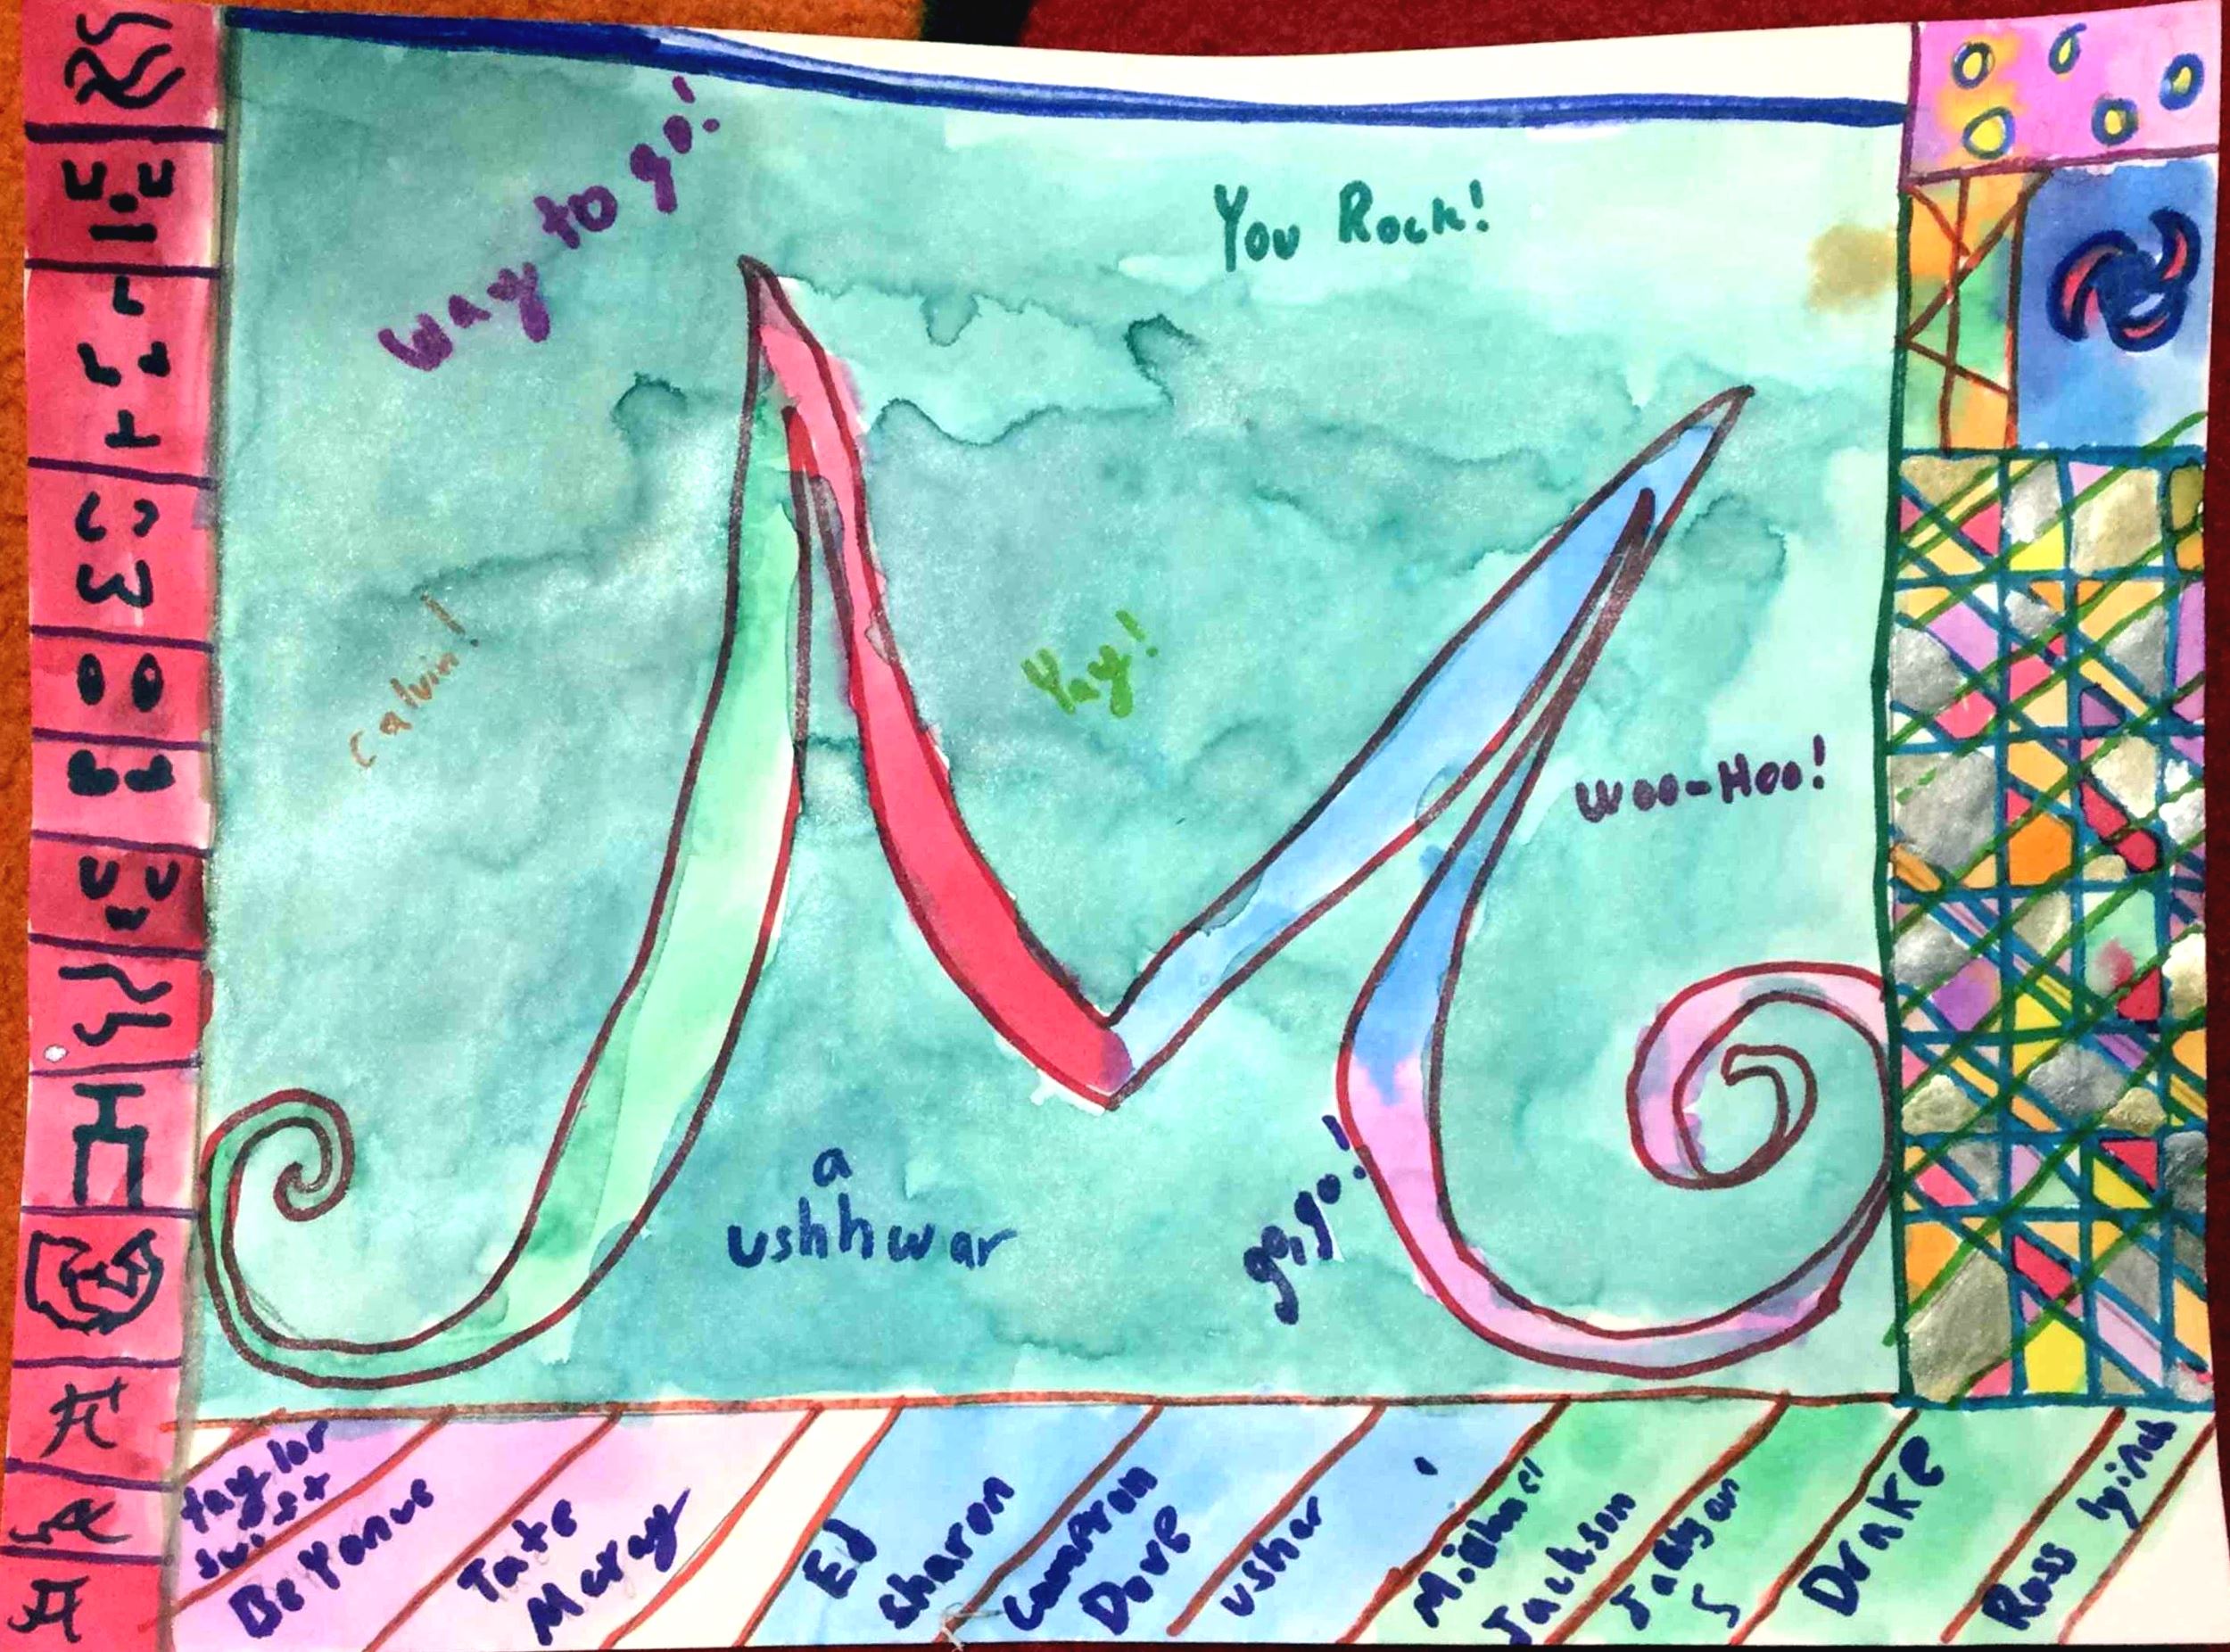 Way to go!
You Rock!
Calvin!
Yay!
Woo-Hoo!
a
ushhwar
go, go!
M
taylor
swist
BeYonue
Tate
Mcray
Ed
sharon
Cameron
Dove
usher
Michael
Jackson
Drake
Ross lyinch